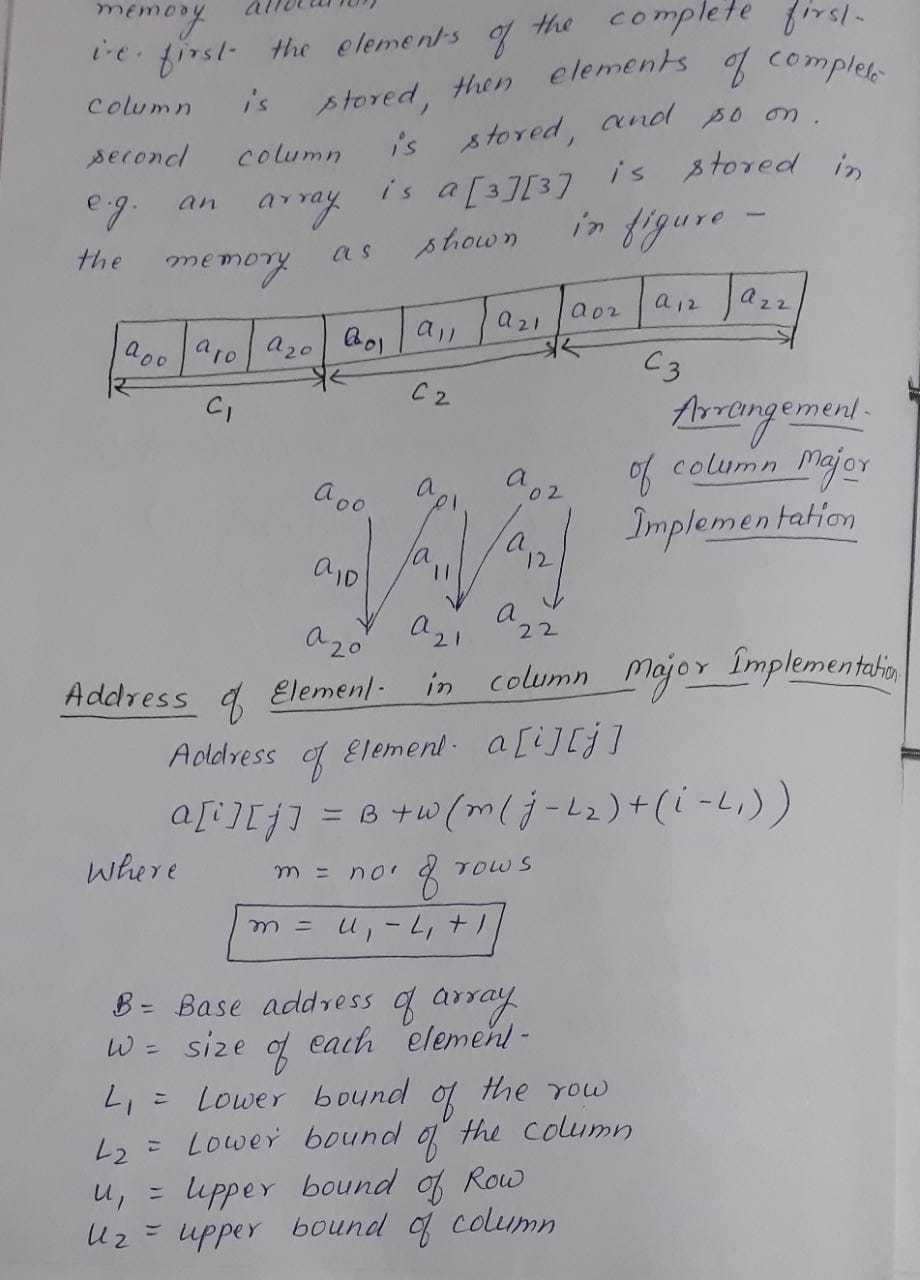 memory
i.e. first the elements of the complete first
column is stored, then elements of complete
second column is stored, and so on.
e.g. an array is a[3][3] is stored in
the memory as shown in figure -
a00 a10 a20 a01 a11 a21 a02 a12 a22
C1 C2 C3
Arrangement
of column Major
Implementation
a00 a01 a02
a10 a11 a12
a20 a21 a22
Address of Element in column Major Implementation
Address of Element a[i][j]
a[i][j] = B + w(m(j-L2)+(i-L1))
Where m = no. of rows
m = u1 - L1 + 1
B = Base address of array
W = size of each element
L1 = Lower bound of the row
L2 = Lower bound of the column
u1 = upper bound of Row
u2 = upper bound of column